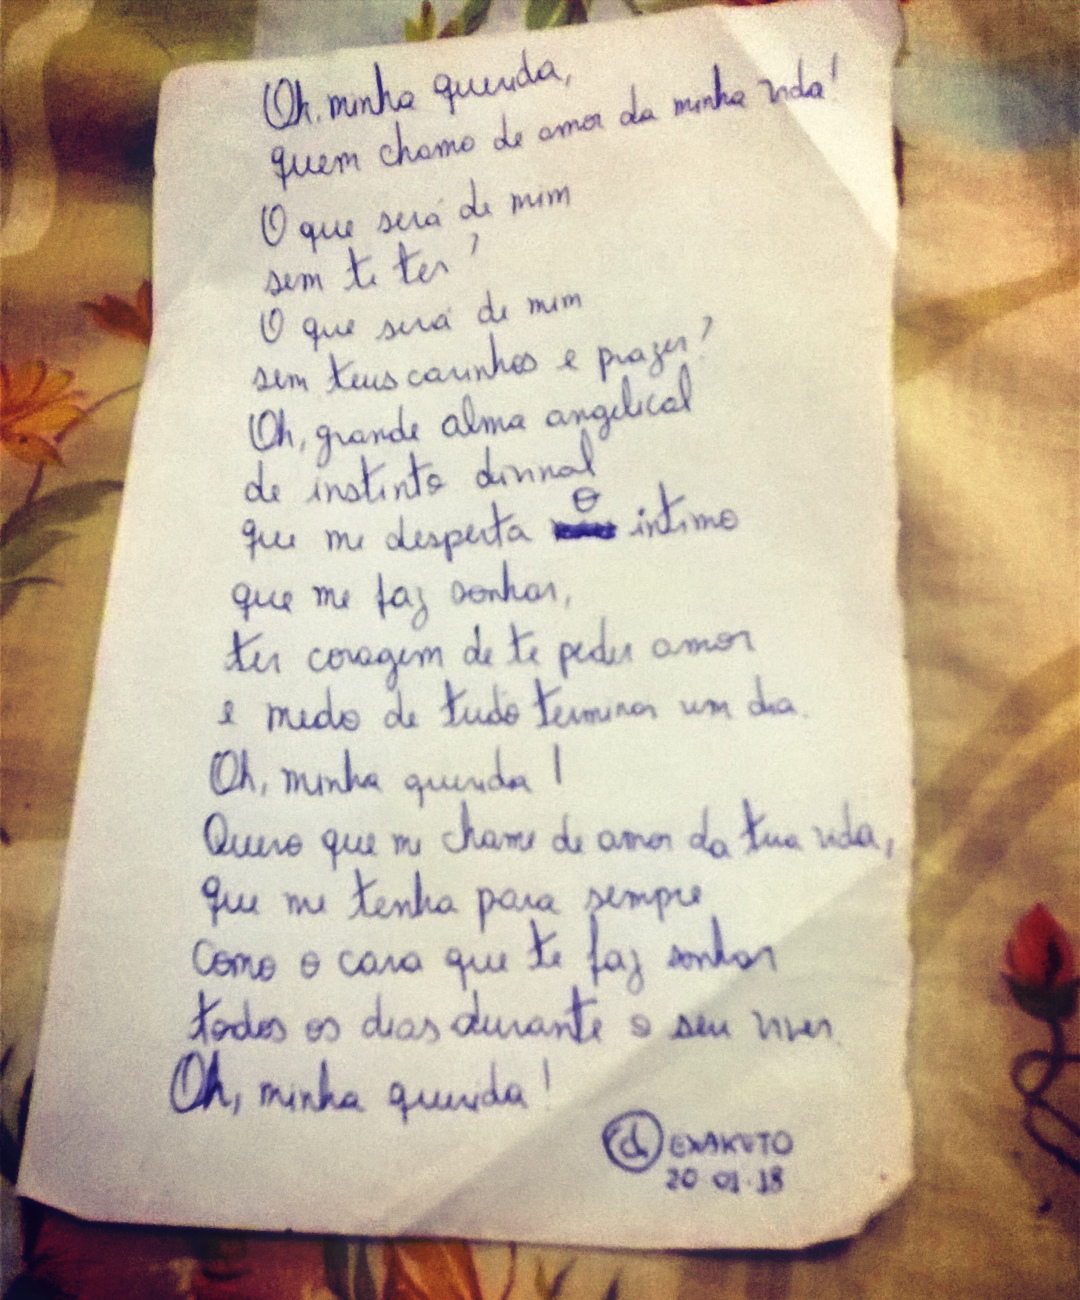 Oh, minha querida,
quem chamo de amor da minha vida!
O que será de mim
sem te ter?
O que será de mim
sem teus carinhos e prazer?
Oh, grande alma angelical
de instinto divinal
que me desperta o intimo
que me faz sonhar,
ter coragem de te peder amor
e medo de tudo terminar um dia.
Oh, minha querida!
Quero que me chame de amor da tua vida,
que me tenha para sempre
como o cara que te faz sonhar
todos os dias durante o seu viver.
Oh, minha querida!
20.01.18